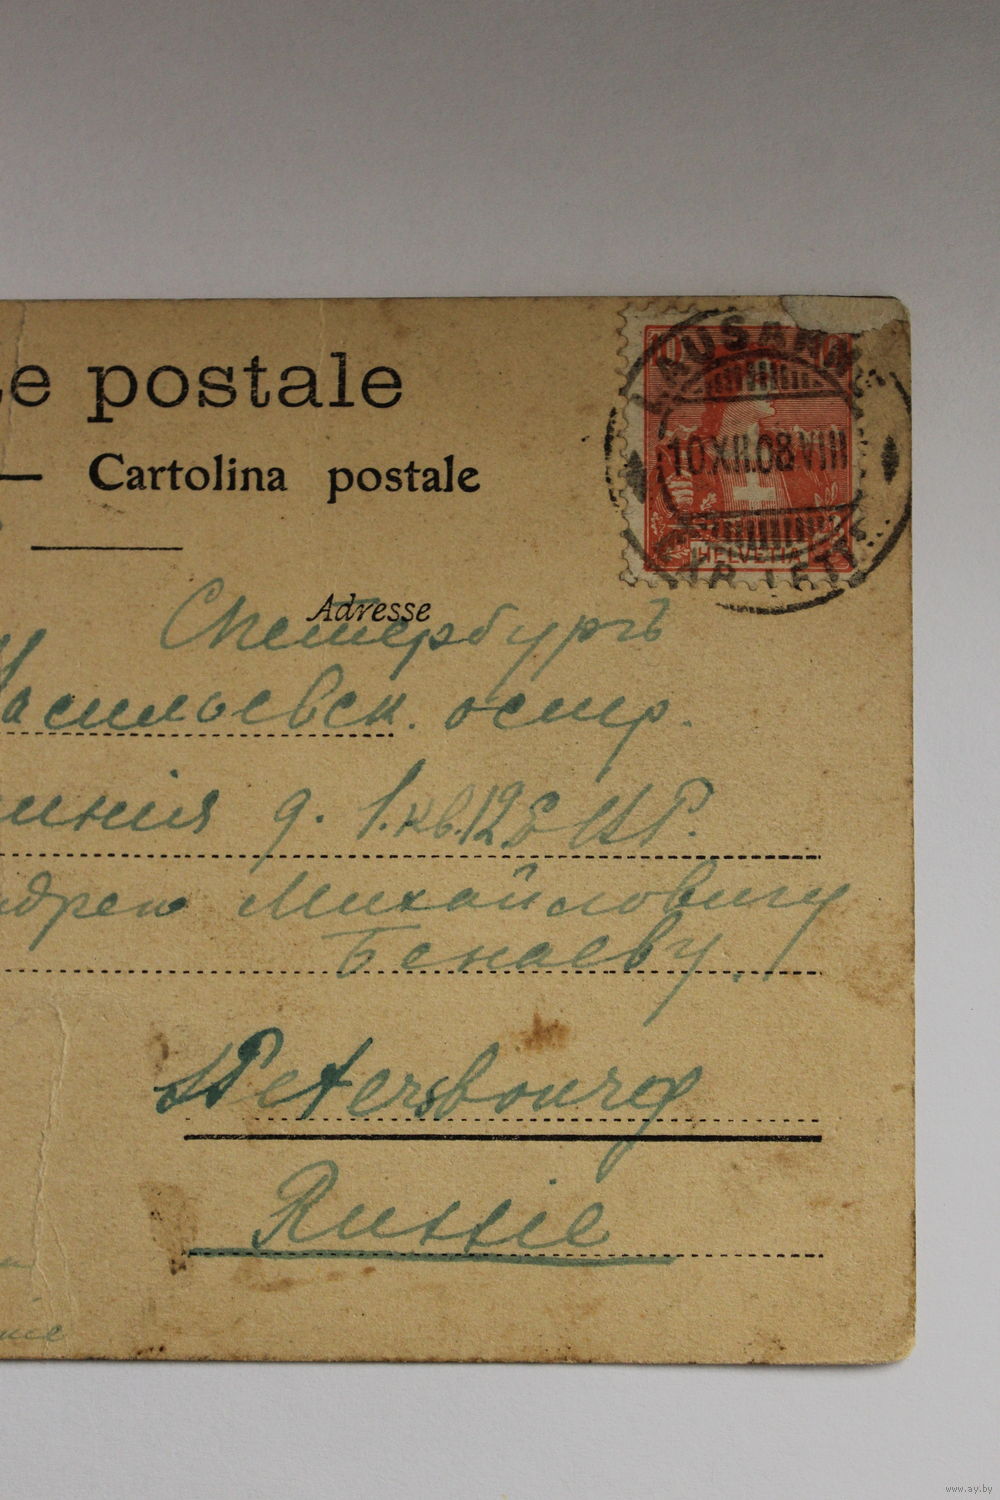 te postale
Cartolina postale
10
LAUSANNE
10.XII.08.VIII
HELVETIA
LETTR.
Adresse
Спетербургъ
Васильевск. остр.
линия д. 1. кв. 12
Андрею Михайловичу
Бенаеву.
St Petersbourg
Russie
www.ay.by